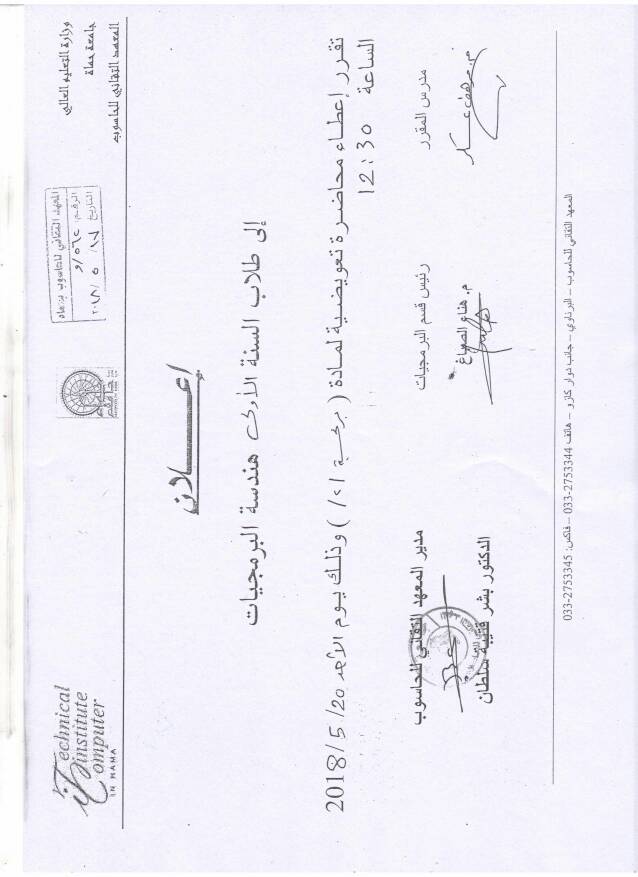 وزارة التعليم العالي
جامعة حماة
المعهد التقاني للحاسوب
المعهد التقاني للحاسوب بحماه
الرقم: ٥٦٢/و
التاريخ ١٧ / ٥ / ٢٠١٨
Technical
institute
Computer
IN HAMA
إعـــــلان
إلى طلاب السنة الأولى هندسة البرمجيات
تقرر إعطاء محاضرة تعويضية لمادة ( برمجة /٢/ ) وذلك يوم الأحد 2018/5/20
الساعة 12:30
مدرس المقرر
رئيس قسم البرمجيات
م. هناء الصباغ
مدير المعهد التقاني للحاسوب
الدكتور بشر قتيبة سلطان
المعهد التقاني للحاسوب – البرناوي – جانب دوار كازو – هاتف 2753344-033 – فاكس: 2753345-033